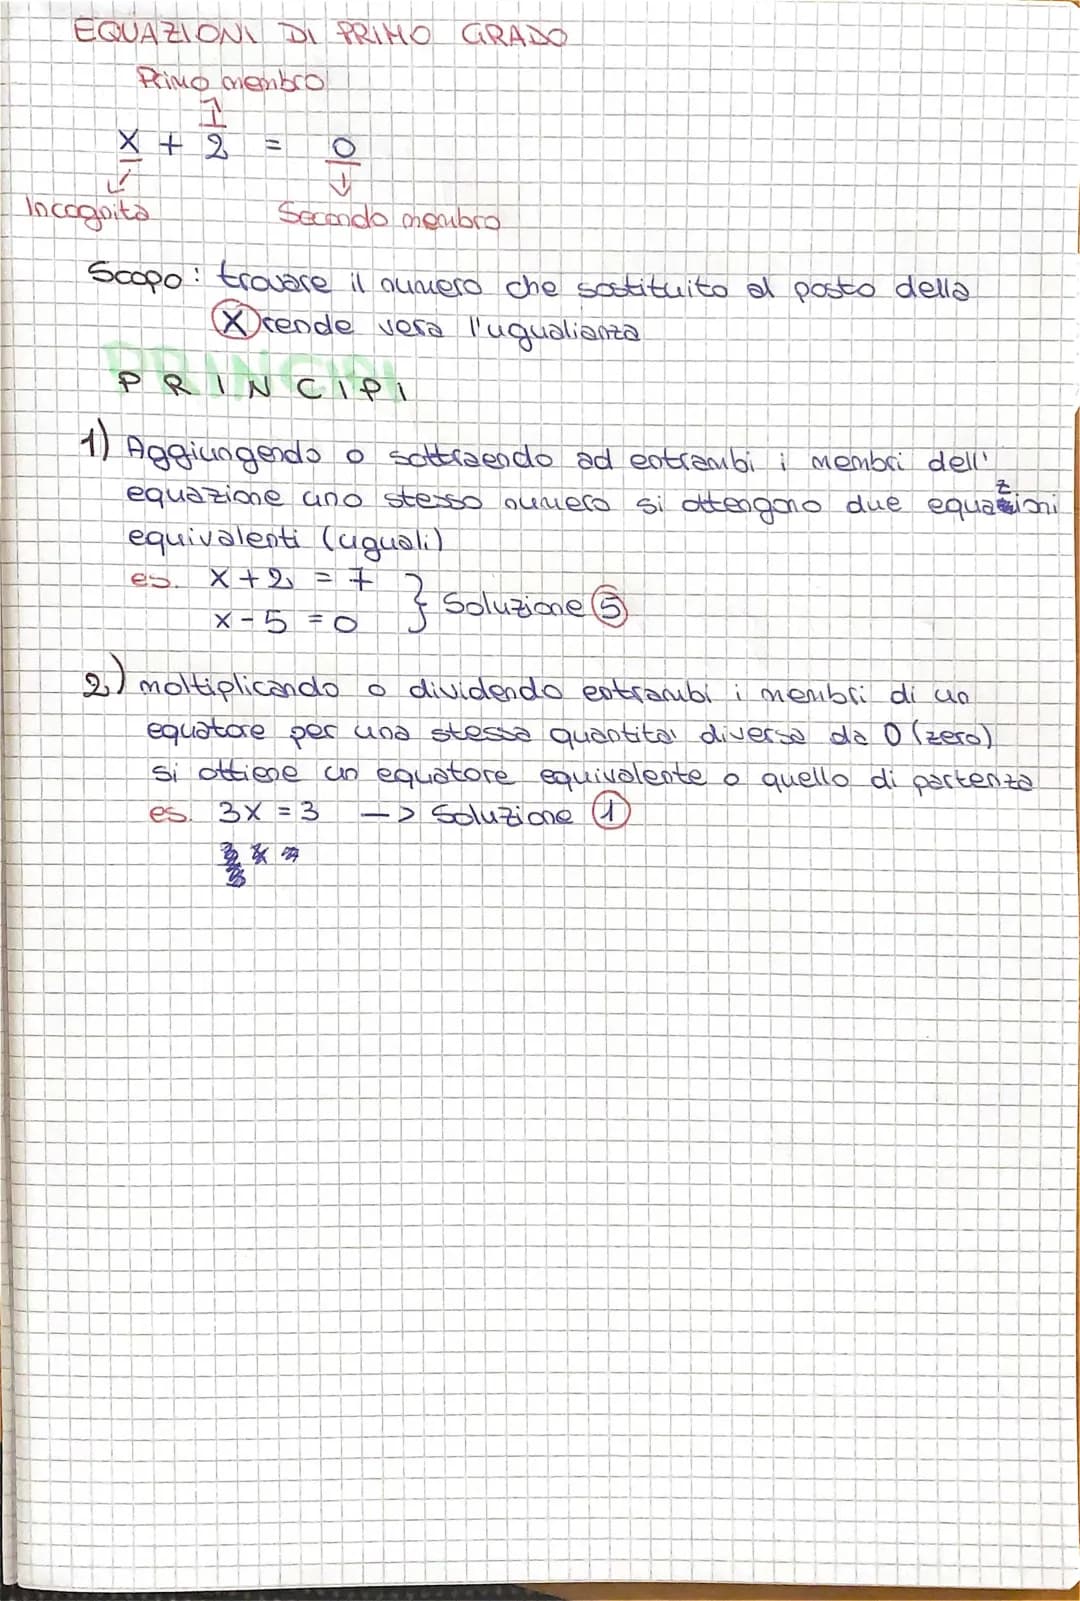 EQUAZIONI DI PRIMO GRADO
Primo membro
x + 2 = 0
Incognita Secondo membro
Scopo: trovare il numero che sostituito al posto della
x rende vera l'ugualianza
PRINCIPI
1) Aggiungendo o sottraendo ad entrambi i membri dell'
equazione uno stesso numero si ottengono due equazioni
equivalenti (uguali)
es. x + 2 = 7
x - 5 = 0 } Soluzione 5
2) moltiplicando o dividendo entrambi i membri di un
equatore per una stessa quantita' diversa da 0 (zero)
si ottiene un equatore equivalente a quello di partenza
es. 3x = 3 —> Soluzione 1